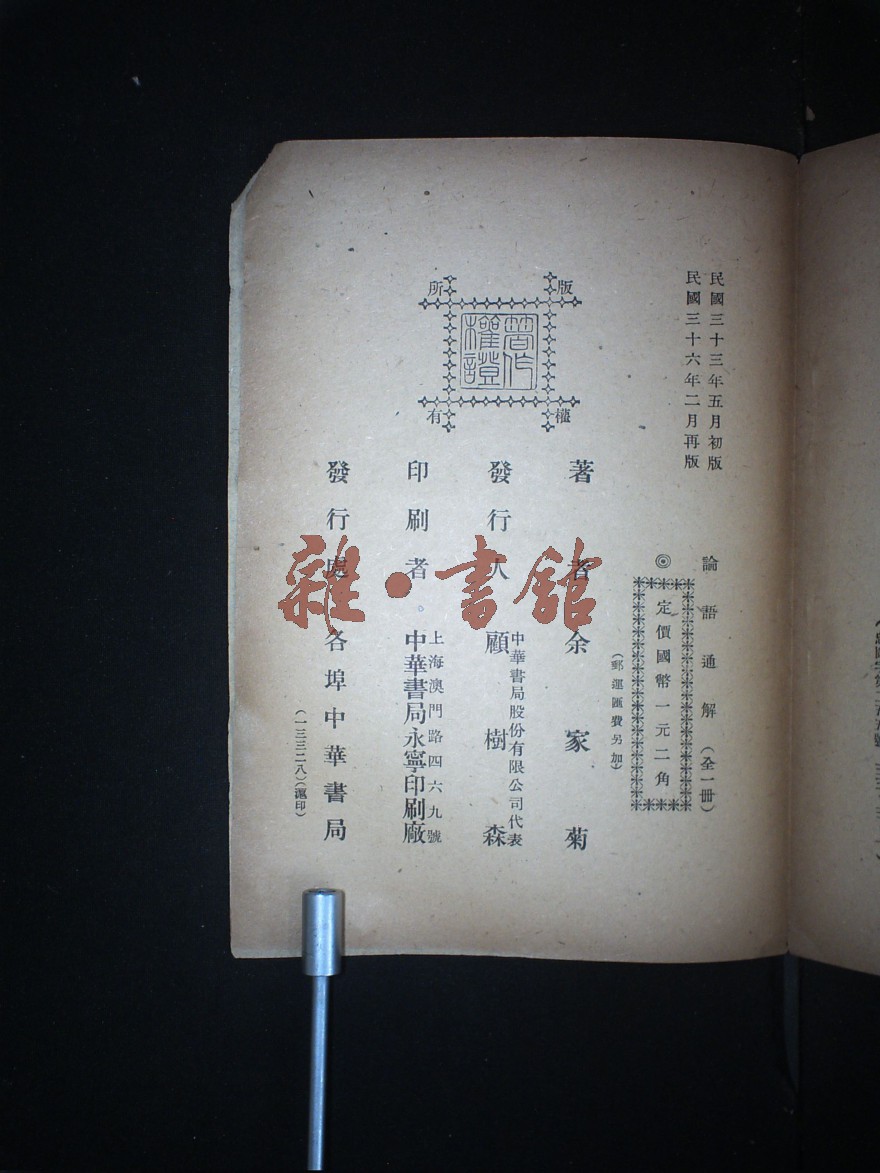 民國三十三年五月初版
民國三十六年二月再版
論語通解（全一冊）
◎定價國幣一元二角
（郵運匯費另加）
版權所有
著作權證
著者 余家菊
發行人 中華書局股份有限公司代表 顧樹森
印刷者 上海澳門路四六九號 中華書局永寧印刷廠
發行處 各埠中華書局
（一三三二八）（滬印）
雜·書館